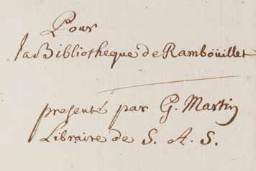 Pour
la Bibliotheque de Ramböuillet
presenté par G. Martin
Libraire de S. A. S.